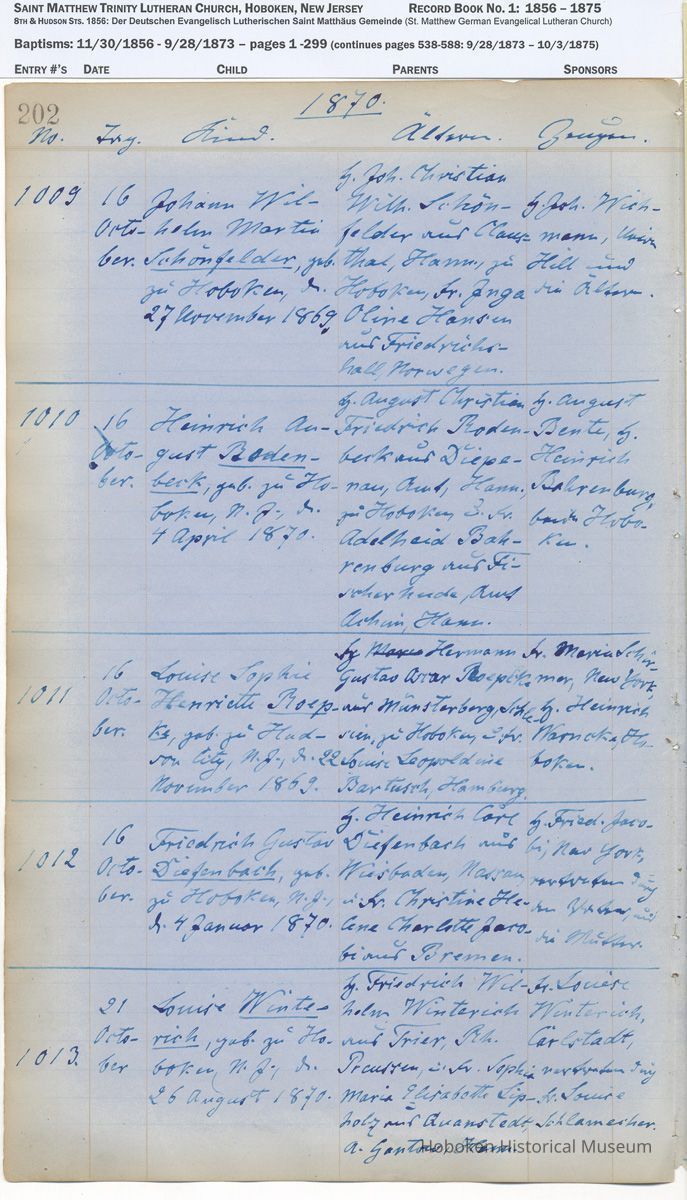 SAINT MATTHEW TRINITY LUTHERAN CHURCH, HOBOKEN, NEW JERSEY RECORD BOOK NO. 1: 1856 – 1875
8TH & HUDSON STS. 1856: Der Deutschen Evangelisch Lutherischen Saint Matthäus Gemeinde (St. Matthew German Evangelical Lutheran Church)
Baptisms: 11/30/1856 - 9/28/1873 – pages 1 -299 (continues pages 538-588: 9/28/1873 – 10/3/1875)
ENTRY #'S DATE CHILD PARENTS SPONSORS
202
1870.
No. Tag. Kind. Ältern. Zeugen.
1009
16
Octo-
ber.
Johann Wil-
helm Martin
Schönfelder, geb.
zu Hoboken, d.
27 November 1869,
H. Joh. Christian
Wilh. Schön-
felder aus Claus-
thal, Hann., zu
Hoboken, Fr. Inga
Oline Hansen
aus Friedrichs-
hall, Norwegen.
H. Joh. Wich-
mann, Union
Hill und
die Ältern.
1010
16
Octo-
ber.
Heinrich Au-
gust Boden-
beck, geb. zu Ho-
boken, N. J., d.
4 April 1870.
H. August Christian
Friedrich Boden-
beck aus Diepe-
nau, Amt, Hann.,
zu Hoboken u. Fr.
Adelheid Bah-
renburg aus Fi-
scherhude, Amt
Achim, Hann.
H. August
Bente, H.
Heinrich
Bahrenburg,
beide Hobo-
ken.
1011
16
Octo-
ber.
Louise Sophie
Henriette Roep-
ke, geb. zu Hud-
son City, N. J., d. 22
November 1869.
Hermann
Gustav Oscar Roepke
aus Münsterberg, Schle-
sien, zu Hoboken, u. Fr.
Louise Leopoldine
Bartusch, Hamburg.
Fr. Maria Schir-
mer, New York,
H. Heinrich
Warncke, Ho-
boken.
1012
16
Octo-
ber.
Friedrich Gustav
Diefenbach, geb.
zu Hoboken, N. J.,
d. 4 Januar 1870.
H. Heinrich Carl
Diefenbach aus
Wiesbaden, Nassau,
u. Fr. Christine He-
lene Charlotte Jaco-
bi aus Bremen.
H. Fried. Jaco-
bi, New York,
vertreten durch
den Vater, und
die Mutter.
1013.
21
Octo-
ber
Louise Winte-
rich, geb. zu Ho-
boken, N. J., d.
26 August 1870.
H. Friedrich Wil-
helm Winterich
aus Trier, Rh.
Preussen, u. Fr. Sophia
Maria Elisabethe Lip-
holz aus Quanstedt,
Fr. Louise
Winterich,
Carlstadt,
vertreten durch
Fr. Louise
Schlamescher.
Hoboken Historical Museum